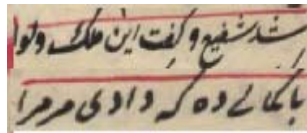 شد شفیع و گفت این ملک و لوا
با کمالے ده که دادی مر مرا